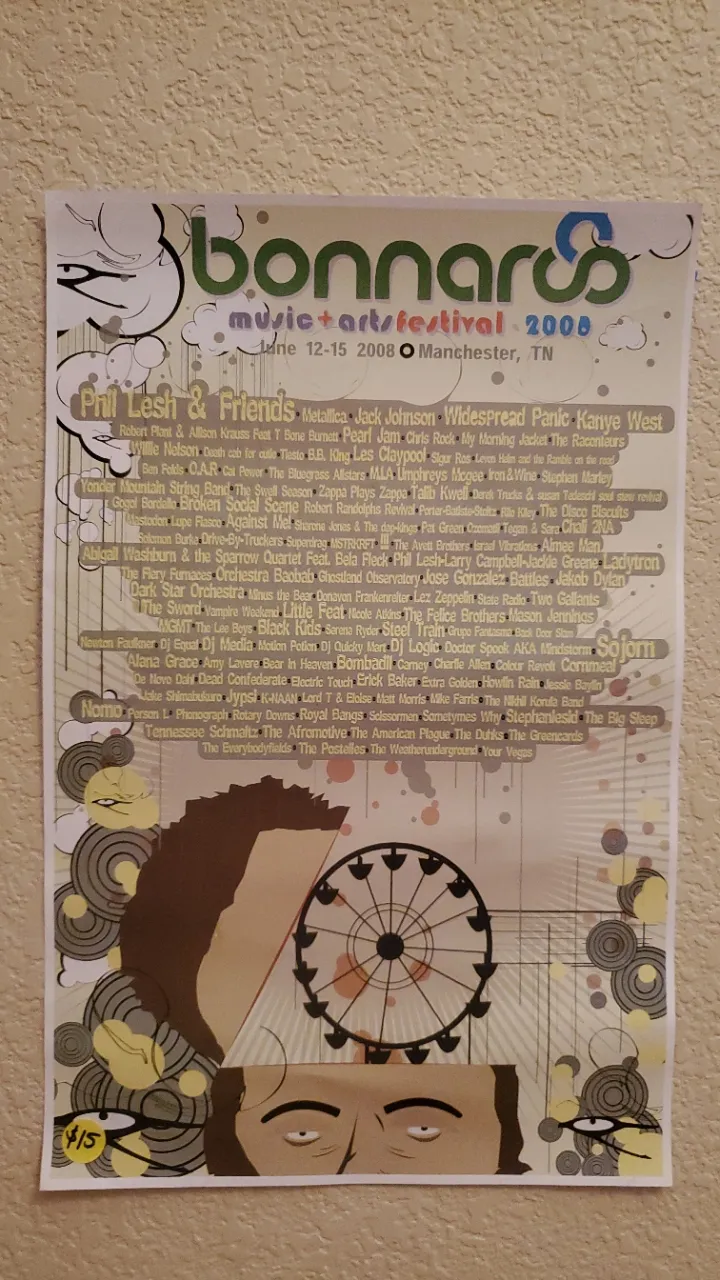 bonnaroo
music+artsfestival 2008
June 12-15 2008 Manchester, TN
Phil Lesh & Friends · Metallica · Jack Johnson · Widespread Panic · Kanye West
Robert Plant & Allison Krauss Feat T Bone Burnett · Pearl Jam · Chris Rock · My Morning Jacket · The Raconteurs
Willie Nelson · Death cab for cutie · Tiesto · B.B. King · Les Claypool · Sigur Ros · Leven Helm and the Ramble on the road
Ben Folds · O.A.R · Cat Power · The Bluegrass Allstars · M.I.A · Umphreys Mcgee · Iron & Wine · Stephen Marley
Yonder Mountain String Band · The Swell Season · Zappa Plays Zappa · Talib Kweli · Derek Trucks & susan Tedeschi soul stew revival
Gogol Bordello · Broken Social Scene · Robert Randolphs Revival · Porter-Batiste-Stoltz · Rilo Kiley · The Disco Biscuits
Mastodon · Lupe Fiasco · Against Me! · Sharone Jones & The dap-kings · Pat Green · Ozomatli · Tegan & Sara · Chali 2NA
Solomon Burke · Drive-By-Truckers · Superdrag · MSTRKRFT · !!! · The Avett Brothers · Israel Vibrations · Aimee Man
Abigail Washburn & the Sparrow Quartet Feat. Bela Fleck · Phil Lesh-Larry Campbell-Jackie Greene · Ladytron
The Fiery Furnaces · Orchestra Baobab · Ghostland Observatory · Jose Gonzalez · Battles · Jakob Dylan
Dark Star Orchestra · Minus the Bear · Donavon Frankenreiter · Lez Zeppelin · State Radio · Two Gallants
The Sword · Vampire Weekend · Little Feat · Nicole Atkins · The Felice Brothers · Mason Jennings
MGMT · The Lee Boys · Black Kids · Serena Ryder · Steel Train · Grupo Fantasma · Back Door Slam
Newton Faulkner · Dj Equal · Dj Media · Motion Potion · Dj Quicky Mart · Dj Logic · Doctor Spook AKA Mindstorm · Sojorn
Alana Grace · Amy Lavere · Bear In Heaven · Bombadil · Carney · Charlie Allen · Colour Revolt · Cornmeal
De Novo Dahl · Dead Confederate · Electric Touch · Erick Baker · Extra Golden · Howlin Rain · Jessie Baylin
Jake Shimabukuro · Jypsi · K-NAAN · Lord T & Eloise · Matt Morris · Mike Farris · The Nikhil Korula Band
Nomo · Person L · Phonograph · Rotary Downs · Royal Bangs · Scissormen · Sometymes Why · Stephaniesid · The Big Sleep
Tennessee Schmaltz · The Afromotive · The American Plague · The Duhks · The Greencards
The Everybodyfields · The Postelles · The Weatherunderground · Your Vegas
$15